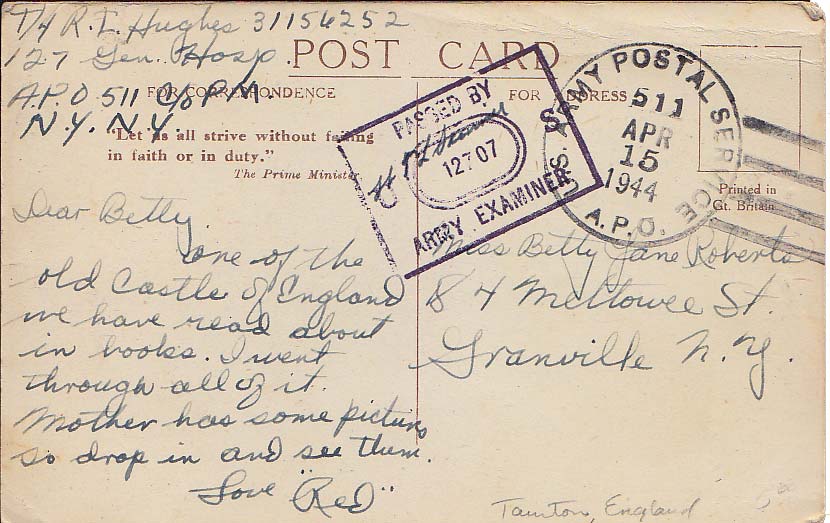 T/4 R. L. Hughes 31156252
127 Gen. Hosp.
A.P.O 511 c/o P.M.
N.Y. N.Y.
POST CARD
FOR CORRESPONDENCE
FOR ADDRESS
"Let us all strive without failing
in faith or in duty."
The Prime Minister.
PASSED BY
12707
ARMY EXAMINER
U.S. ARMY POSTAL SERVICE
511
APR
15
1944
A.P.O.
Printed in
Gt. Britain
Dear Betty
one of the
old Castle of England
we have read about
in books. I went
through all of it.
Mother has some pictures
so drop in and see them.
Love "Red"
Miss Betty Jane Roberts
84 Mettowee St.
Granville N.Y.
Taunton, England